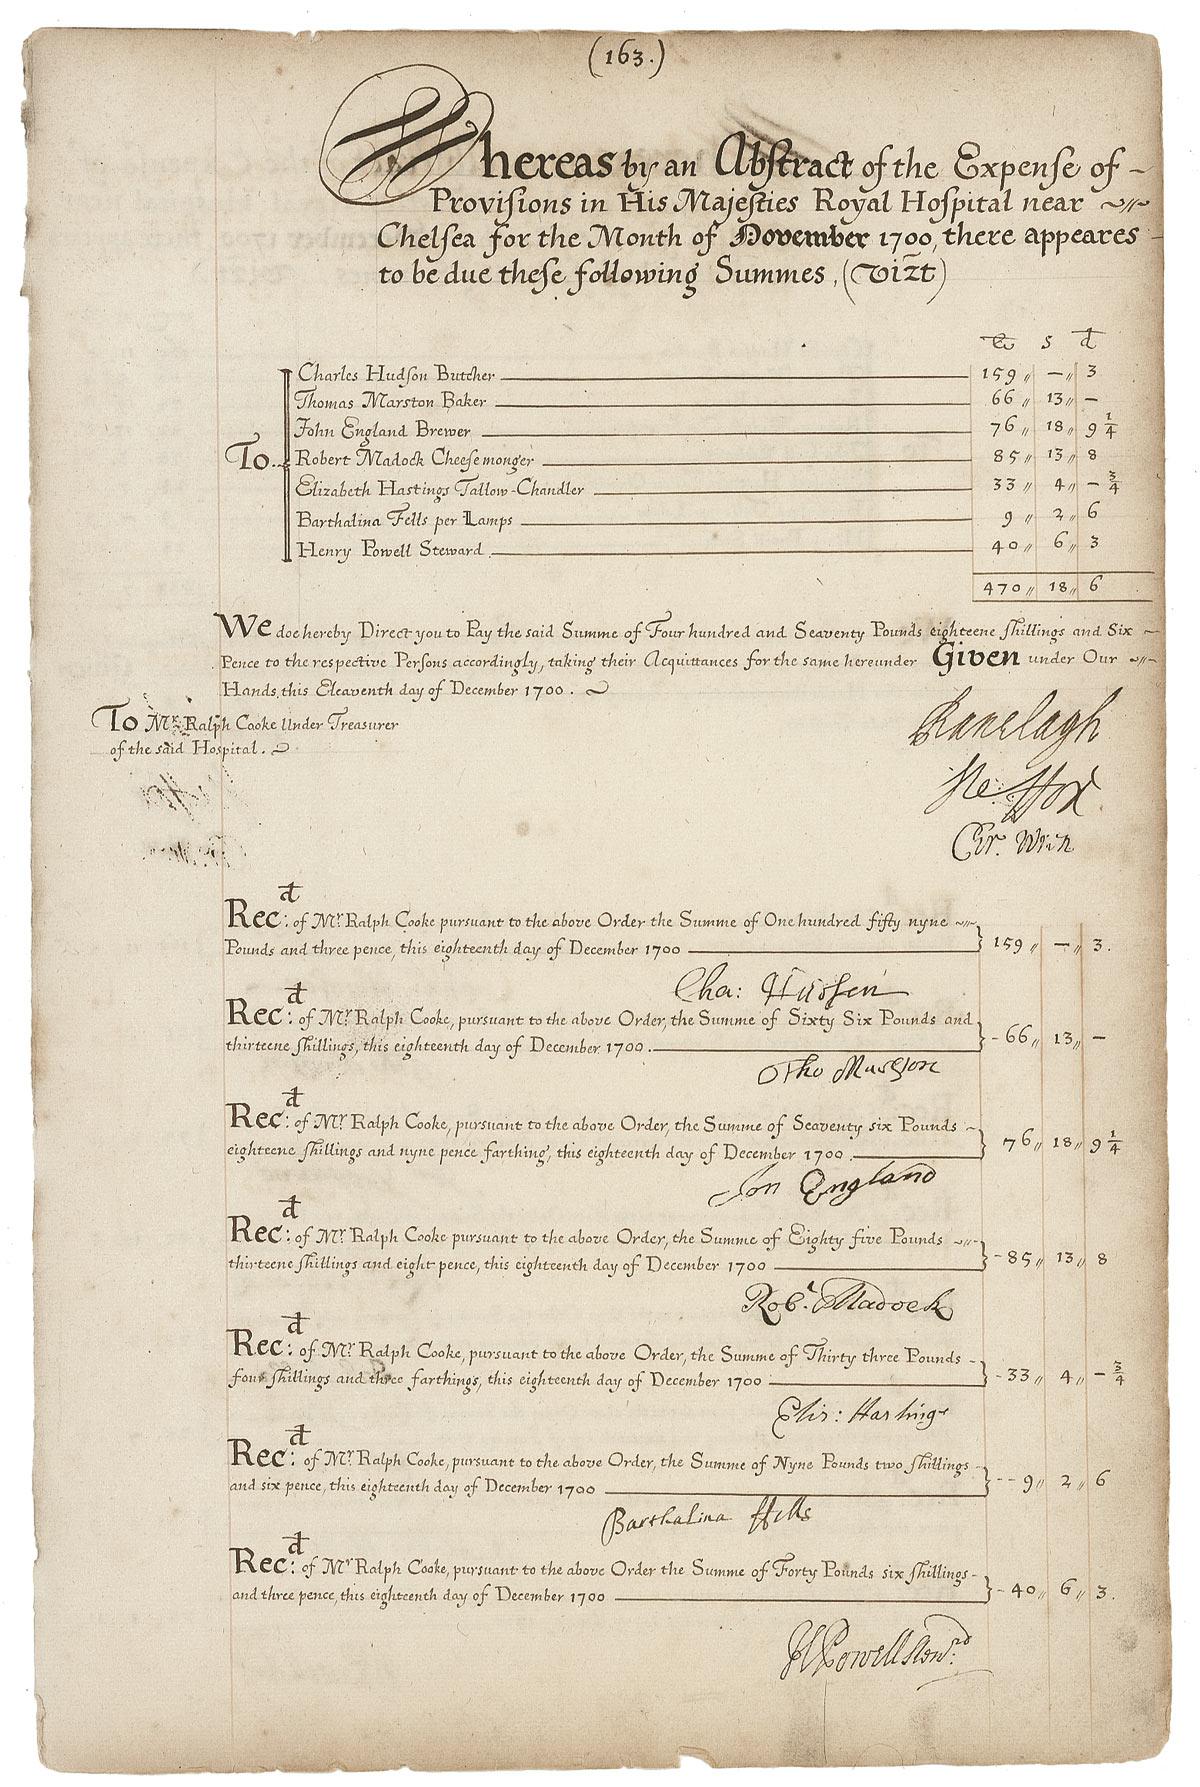 (163.)
Whereas by an Abstract of the Expense of
Provisions in His Majesties Royal Hospital near
Chelsea for the Month of November 1700, there appeares
to be due these following Summes, (Vizt)
£ s d
Charles Hudson Butcher 159 " — " 3
Thomas Marston Baker 66 " 13 " —
John England Brewer 76 " 18 " 9 1/4
To Robert Madock Cheesemonger 85 " 13 " 8
Elizabeth Hastings Tallow-Chandler 33 " 4 " — 3/4
Barthalina Fells per Lamps 9 " 2 " 6
Henry Powell Steward 40 " 6 " 3
470 " 18 " 6
We doe hereby Direct you to Pay the said Summe of Four hundred and Seaventy Pounds eighteene shillings and Six
Pence to the respective Persons accordingly, taking their Acquittances for the same hereunder Given under Our
Hands, this Eleaventh day of December 1700.
To Mr. Ralph Cooke Under Treasurer
of the said Hospital.
Ranelagh
Ste Fox
Chr. Wren
Rec:d of Mr. Ralph Cooke pursuant to the above Order the Summe of One hundred fifty nyne
Pounds and three pence, this eighteenth day of December 1700 159 " — " 3.
Cha: Hudson
Rec:d of Mr. Ralph Cooke, pursuant to the above Order, the Summe of Sixty Six Pounds and
thirteene shillings, this eighteenth day of December 1700. 66 " 13 " —
Tho Marston
Rec:d of Mr. Ralph Cooke, pursuant to the above Order, the Summe of Seaventy six Pounds
eighteene shillings and nyne pence farthing, this eighteenth day of December 1700. 76 " 18 " 9 1/4
Jon England
Rec:d of Mr. Ralph Cooke pursuant to the above Order, the Summe of Eighty five Pounds
thirteene shillings and eight pence, this eighteenth day of December 1700 85 " 13 " 8
Robt. Madock
Rec:d of Mr. Ralph Cooke, pursuant to the above Order, the Summe of Thirty three Pounds
four shillings and three farthings, this eighteenth day of December 1700 33 " 4 " — 3/4
Eliz: Hastings
Rec:d of Mr. Ralph Cooke, pursuant to the above Order, the Summe of Nyne Pounds two shillings
and six pence, this eighteenth day of December 1700 9 " 2 " 6
Barthalina ffells
Rec:d of Mr. Ralph Cooke, pursuant to the above Order the Summe of Forty Pounds six shillings
and three pence, this eighteenth day of December 1700 40 " 6 " 3.
H Powell Stew:rd